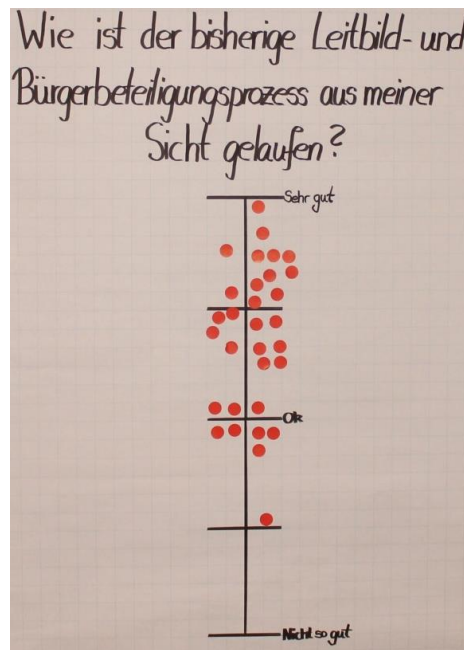 Wie ist der bisherige Leitbild- und
Bürgerbeteiligungsprozess aus meiner
Sicht gelaufen?
Sehr gut
Ok
Nicht so gut